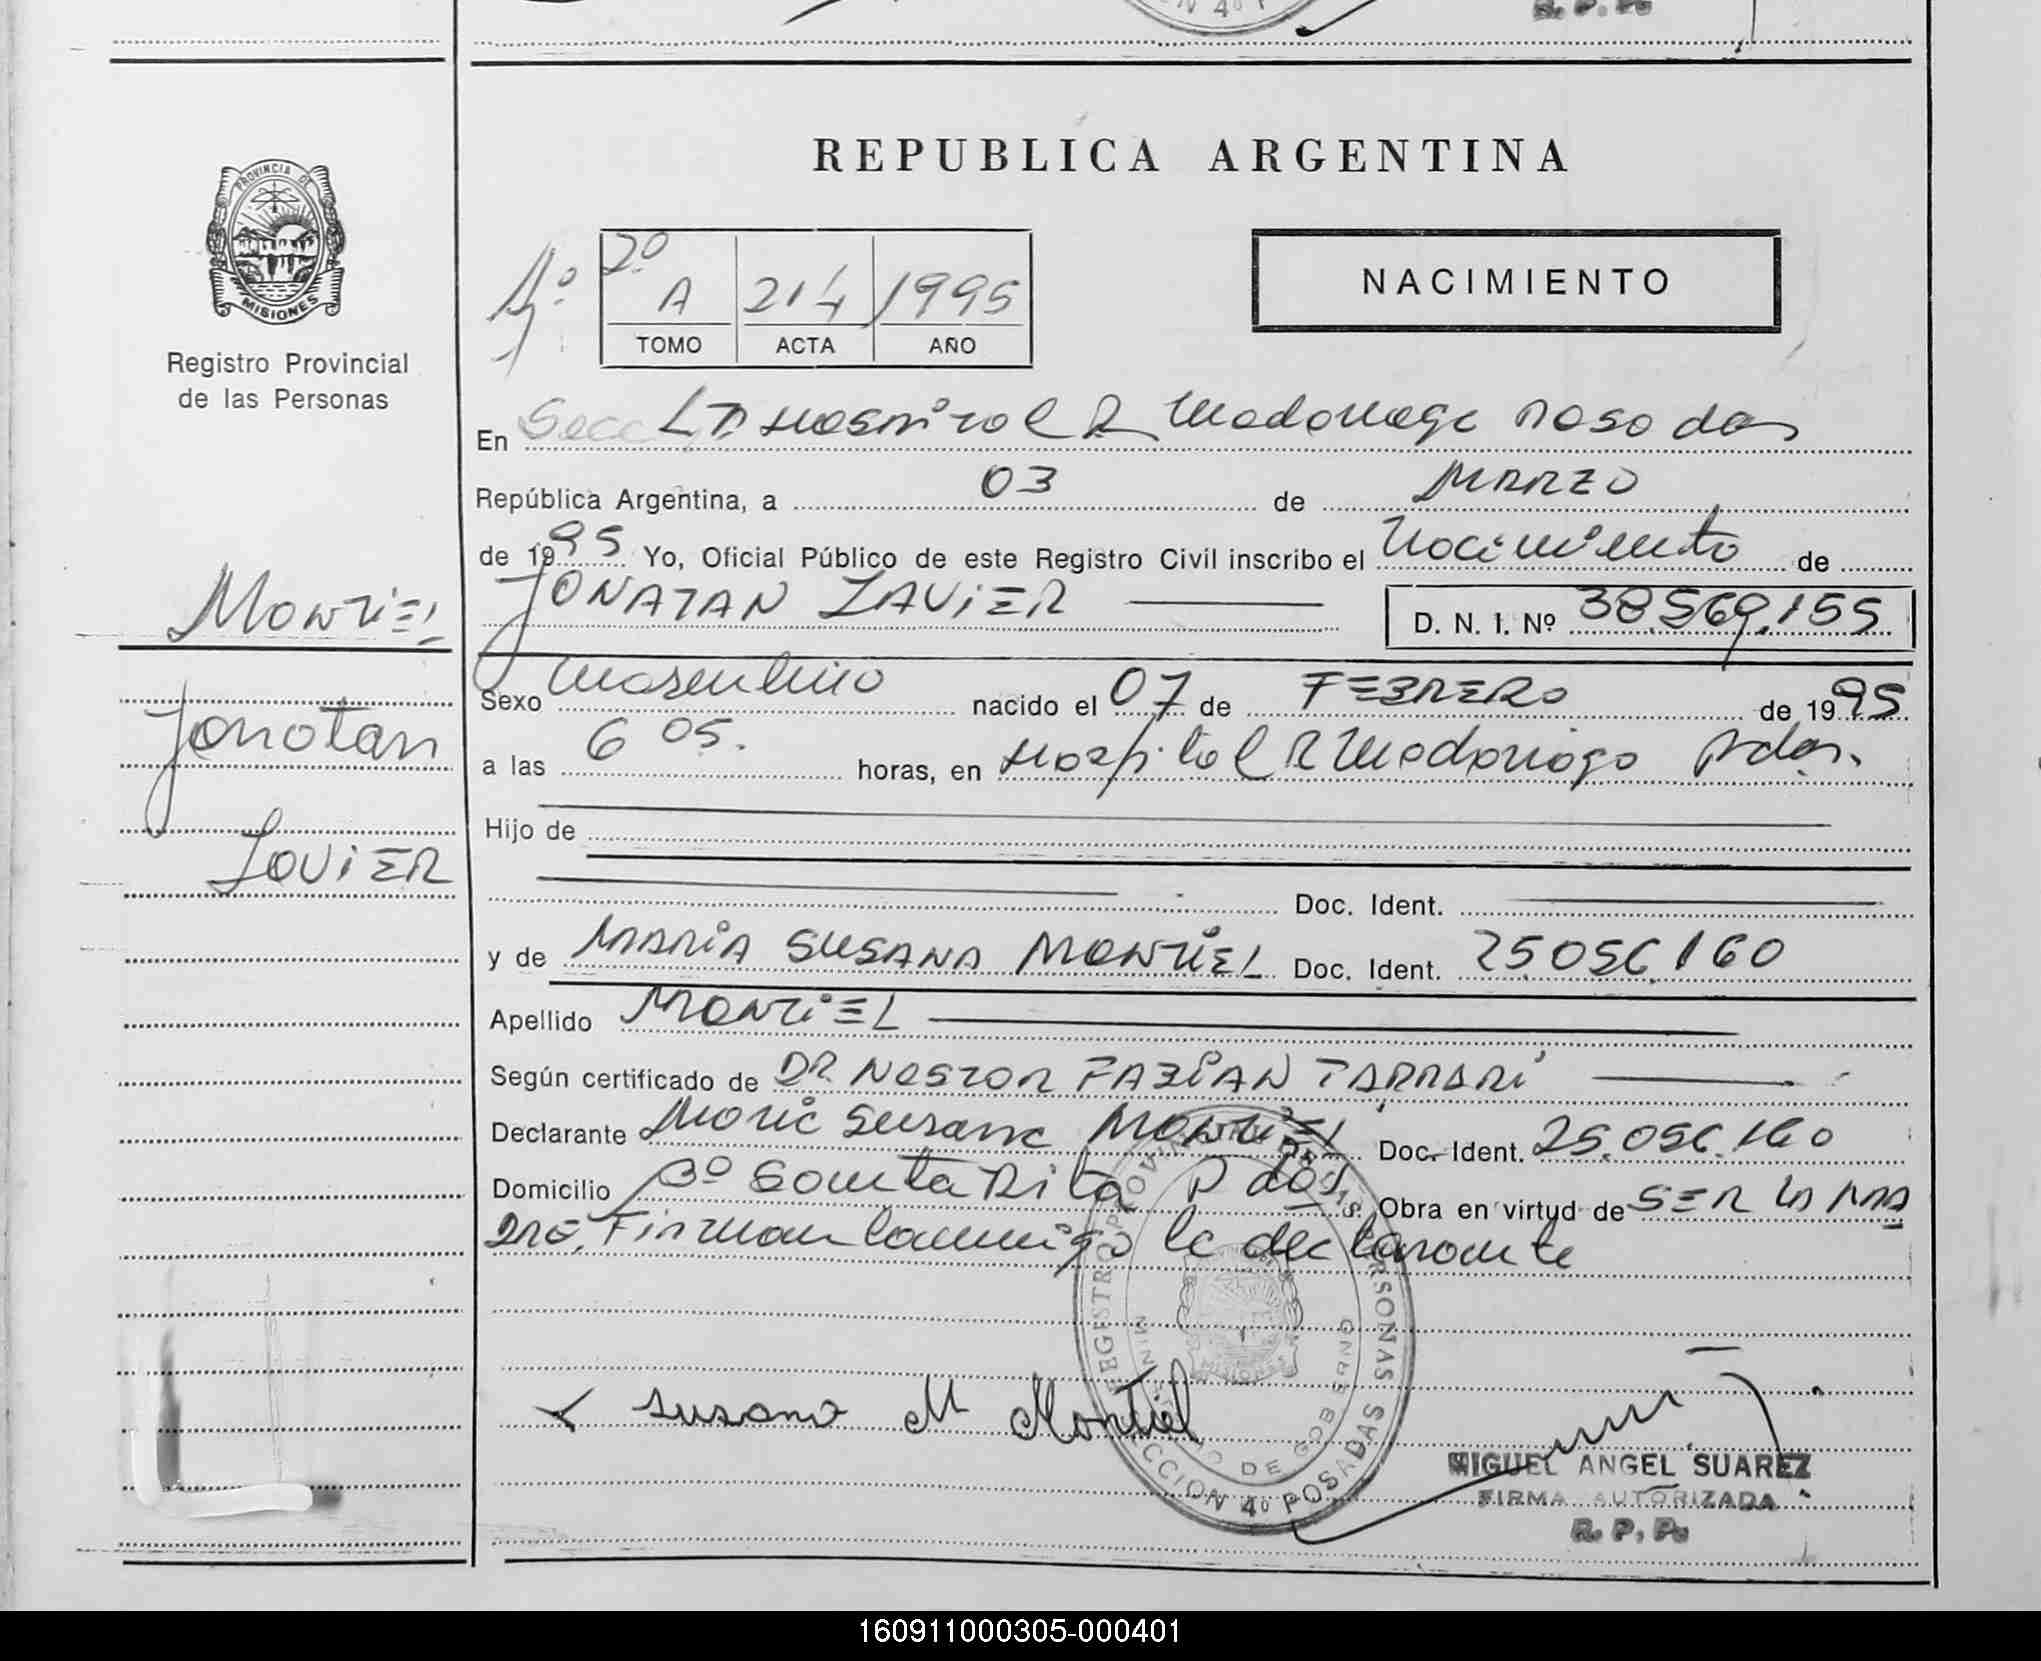 REPUBLICA ARGENTINA
PROVINCIA DE
MISIONES
Registro Provincial
de las Personas
2º
A 214 1995
TOMO ACTA AÑO
NACIMIENTO
En Secc Hospital R Madariaga Posadas
República Argentina, a 03 de MARZO
de 1995 Yo, Oficial Público de este Registro Civil inscribo el Nacimiento de
JONATAN JAVIER D. N. I. Nº 38.569.155
MONTIEL
Jonatan
JAVIER
Sexo Masculino nacido el 07 de FEBRERO de 1995
a las 6 05. horas, en Hospital R Madariaga Pdas.
Hijo de
Doc. Ident.
y de MARIA SUSANA MONTIEL Doc. Ident. 25.056.160
Apellido MONTIEL
Según certificado de DR NESTOR FABIAN
Declarante Maria Susana MONTIEL Doc. Ident. 25.056.160
Domicilio Bº Santa Rita Pdas. Obra en virtud de SER LA MA
DRE. Firman conmigo la declarante
REGISTRO PROVINCIAL DE LAS PERSONAS
MINISTERIO DE GOBIERNO
SECCION 4º POSADAS
MISIONES
Susana M Montiel
MIGUEL ANGEL SUAREZ
FIRMA AUTORIZADA
R. P. P.
160911000305-000401